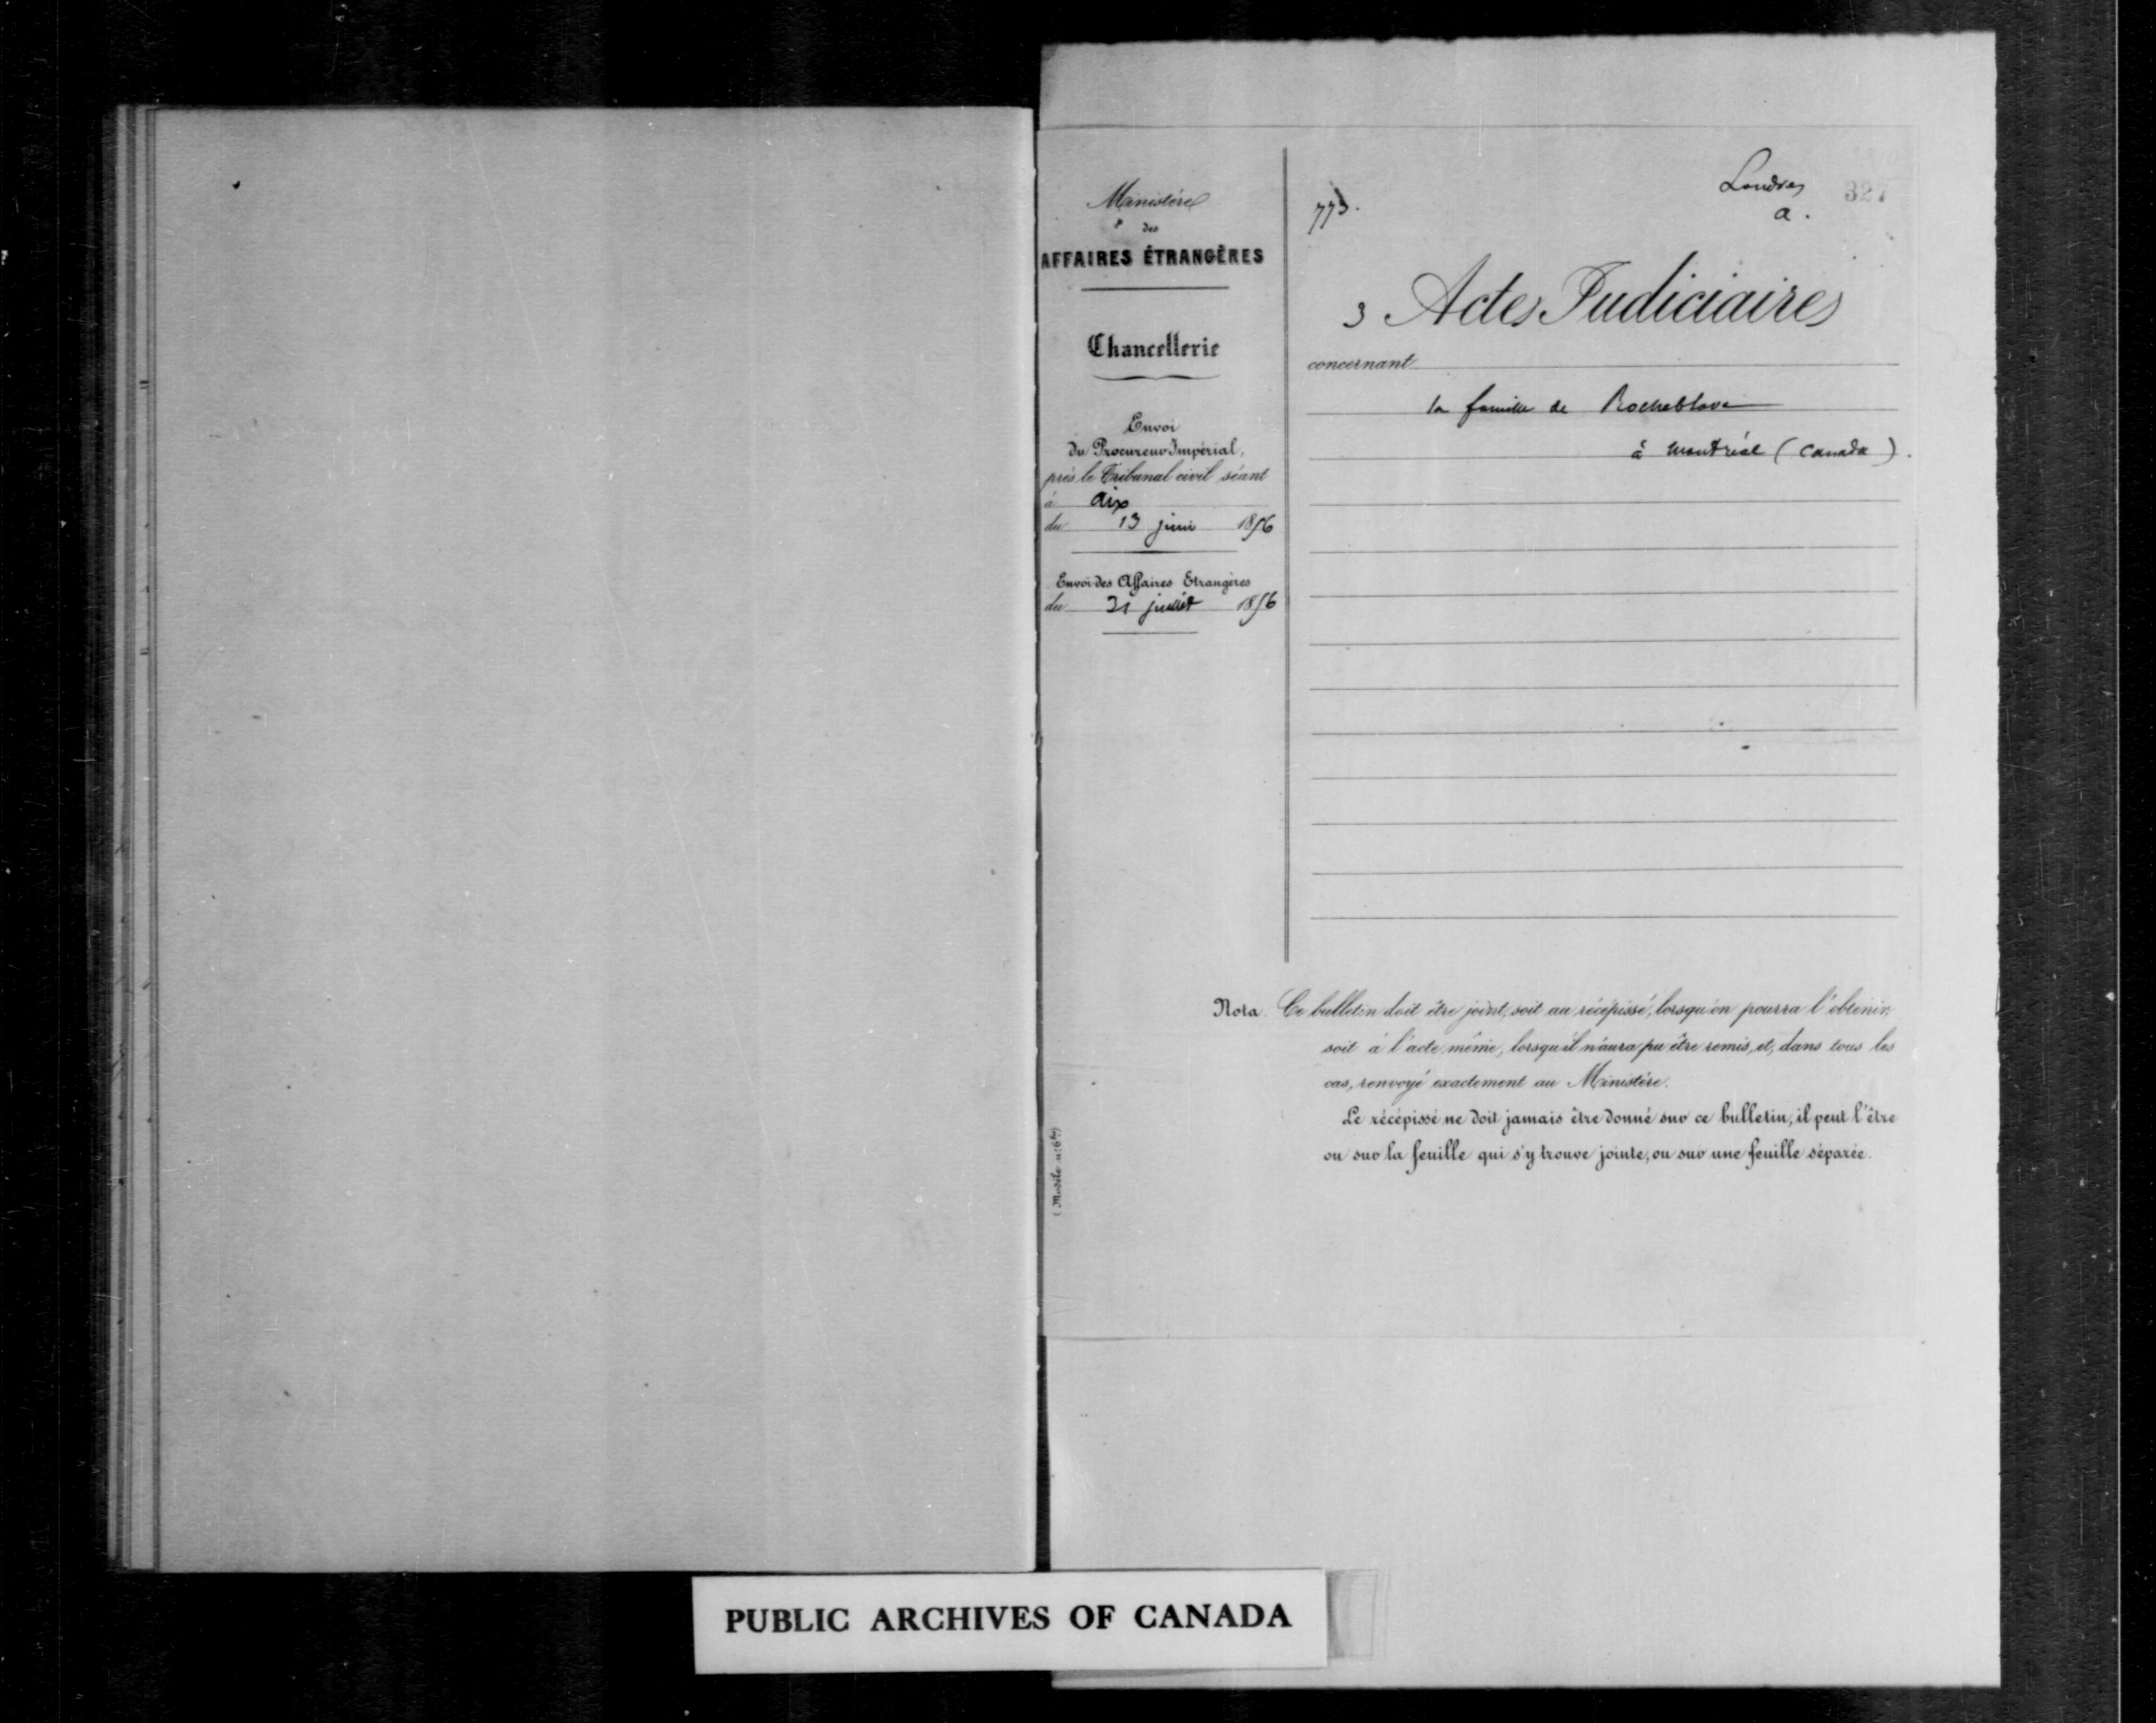 Ministère
des
AFFAIRES ÉTRANGÈRES
Chancellerie
Envoi
du Procureur Impérial,
près le Tribunal civil séant
à aix
du 13 juin 1856
Envoi des Affaires Etrangères
du 31 juillet 1856
(Modèle n:6 bis)
Londres
a.
327
773.
3 Actes Judiciaires
concernant
la famille de Rocheblave
à Montréal (Canada).
Nota. Ce bulletin doit être joint, soit au récépissé, lorsqu'on pourra l'obtenir,
soit à l'acte même, lorsqu'il n'aura pu être remis, et, dans tous les
cas, renvoyé exactement au Ministère.
Le récépissé ne doit jamais être donné sur ce bulletin, il peut l'être
ou sur la feuille qui s'y trouve jointe, ou sur une feuille séparée.
PUBLIC ARCHIVES OF CANADA